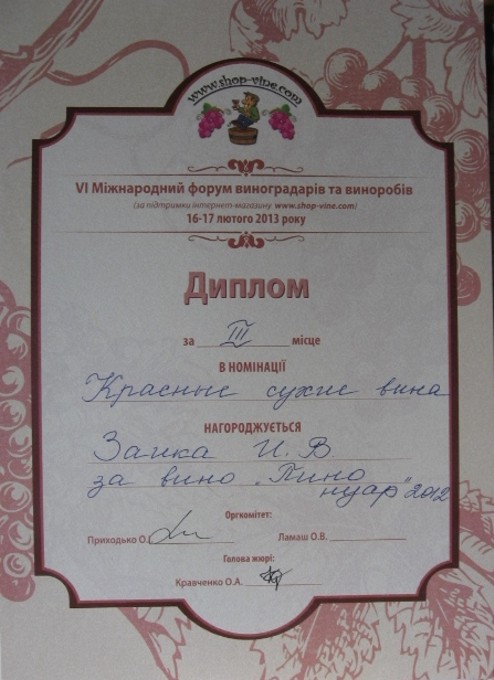 www.shop-vine.com
VI Міжнародний форум виноградарів та виноробів
(за підтримки інтернет-магазину www.shop-vine.com)
16-17 лютого 2013 року
Диплом
за III місце
В НОМІНАЦІЇ
Красные сухие вина
НАГОРОДЖУЄТЬСЯ
Заика И. В.
за вино "Пино
нуар" 2012
Оргкомітет:
Приходько О. Ламаш О.В.
Голова жюрі:
Кравченко О.А.